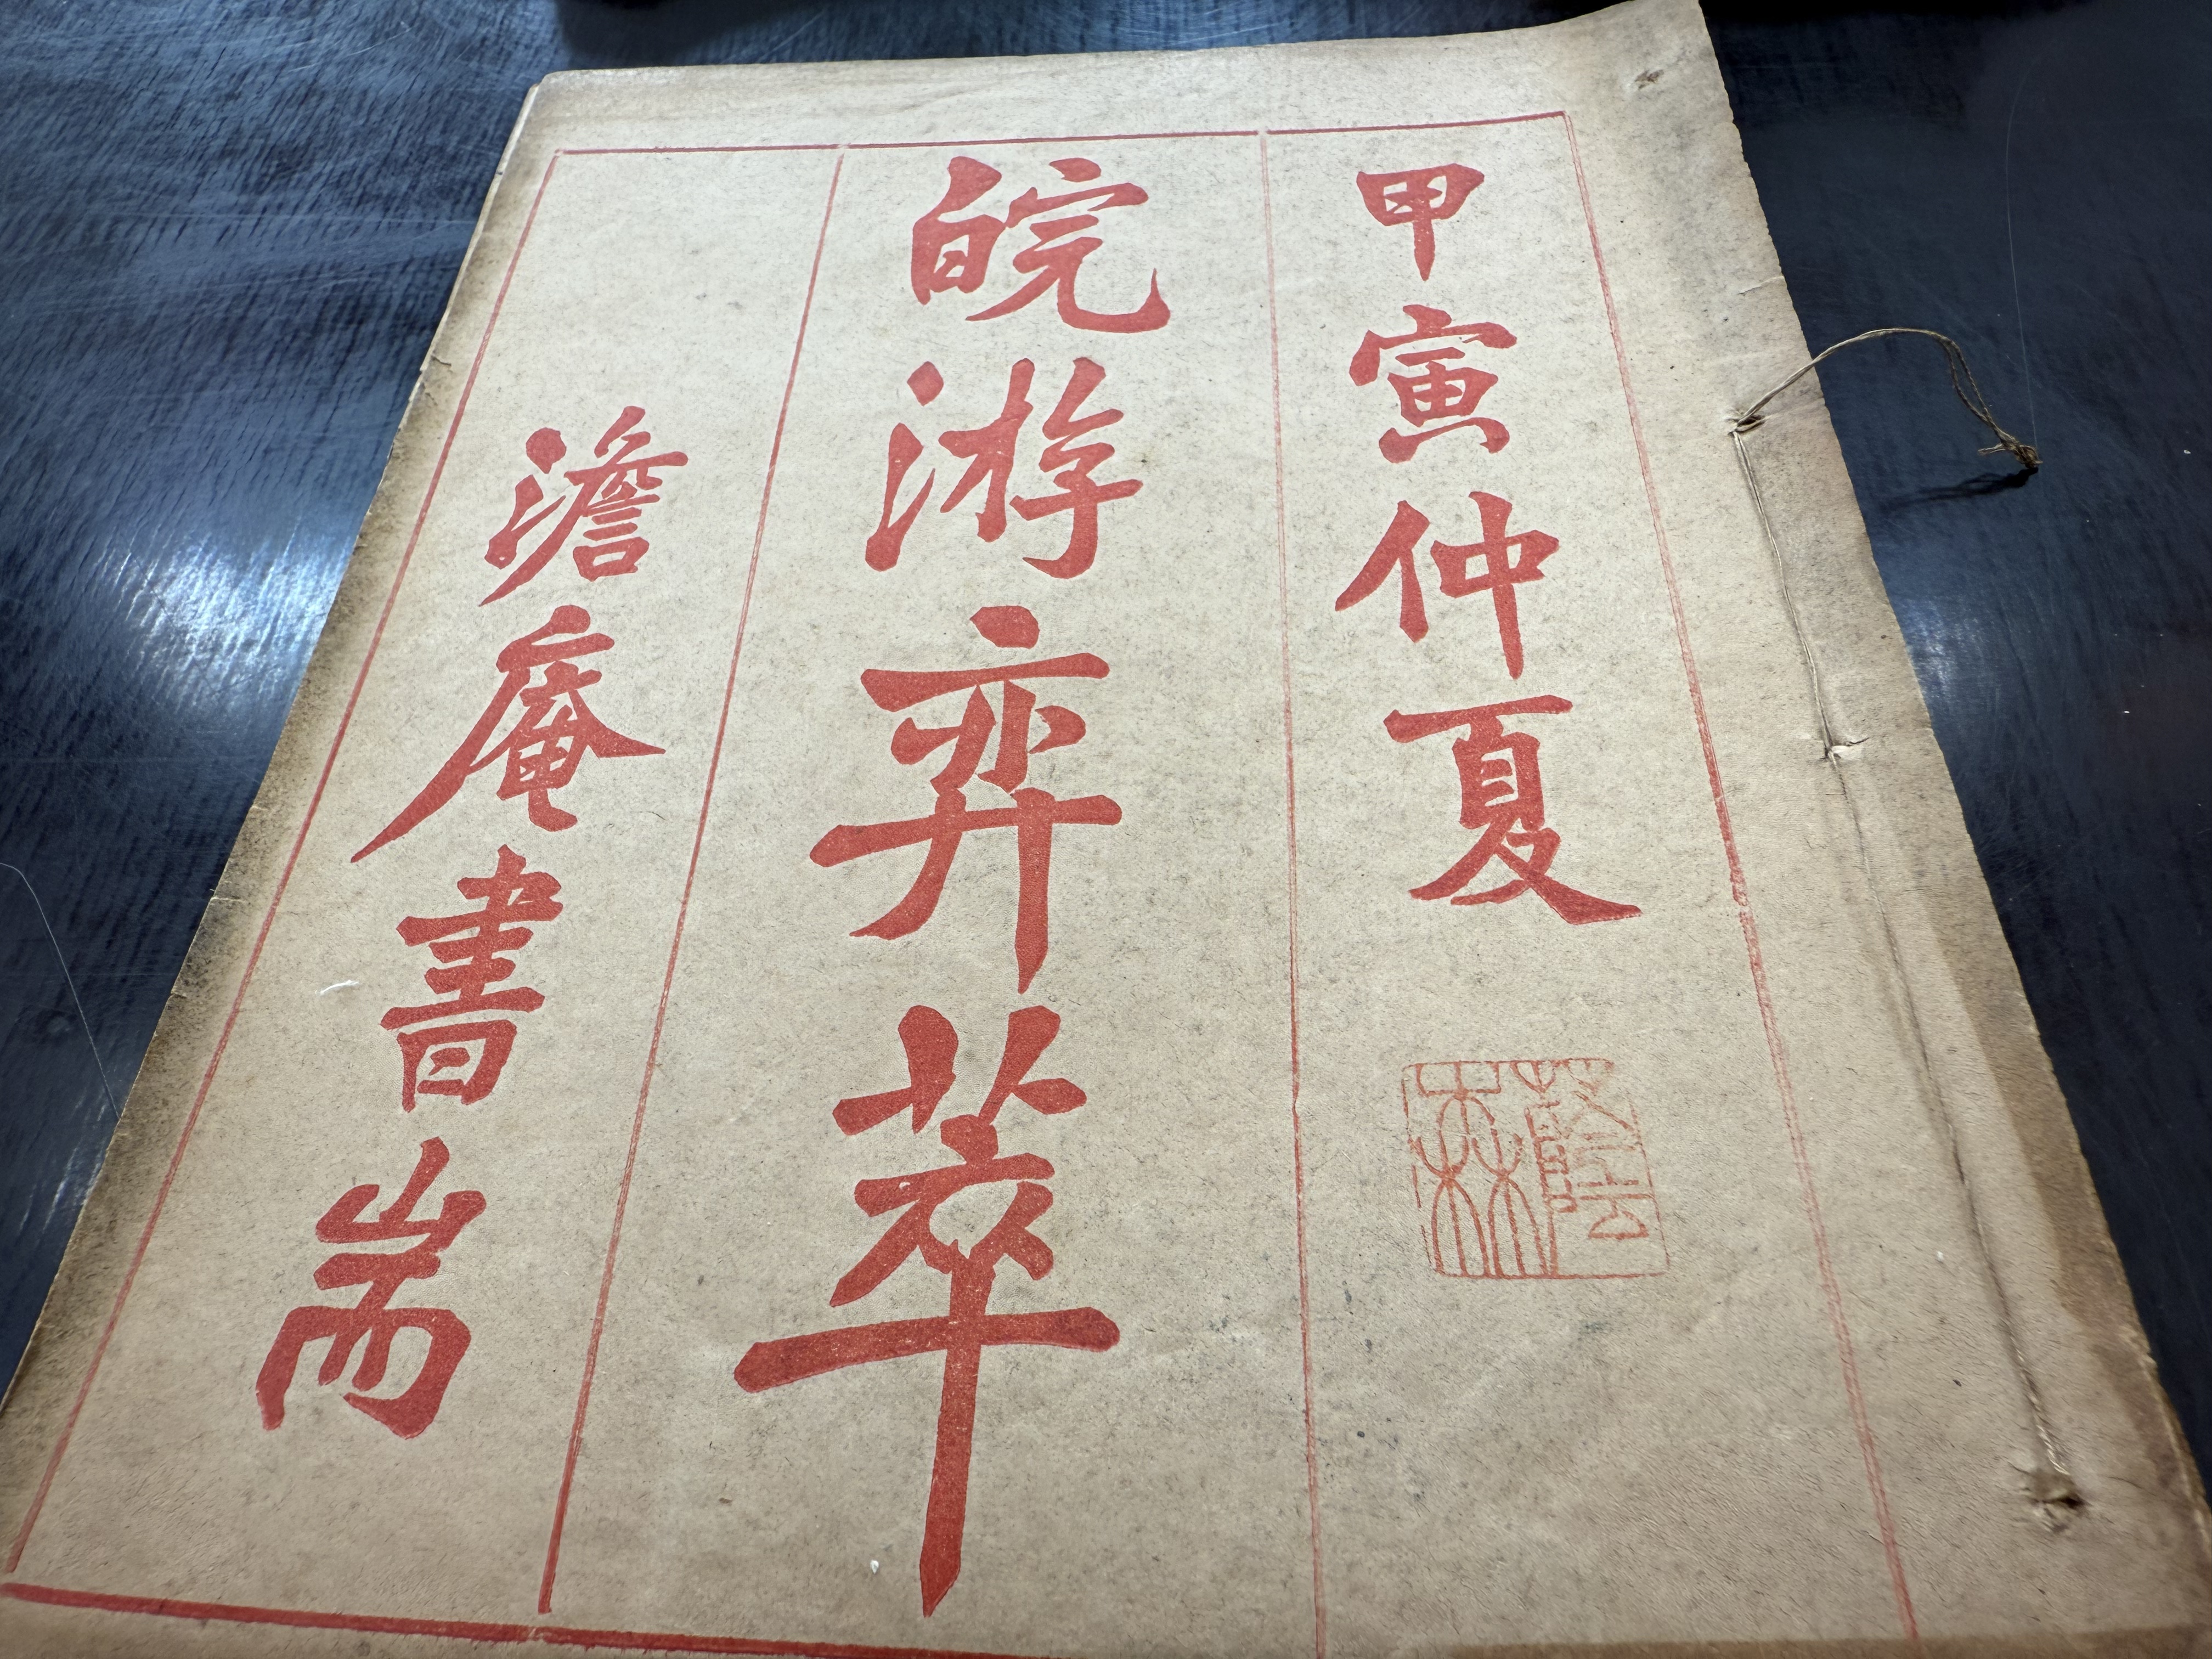 甲寅仲夏
蔭林
皖游弈萃
澹庵書耑